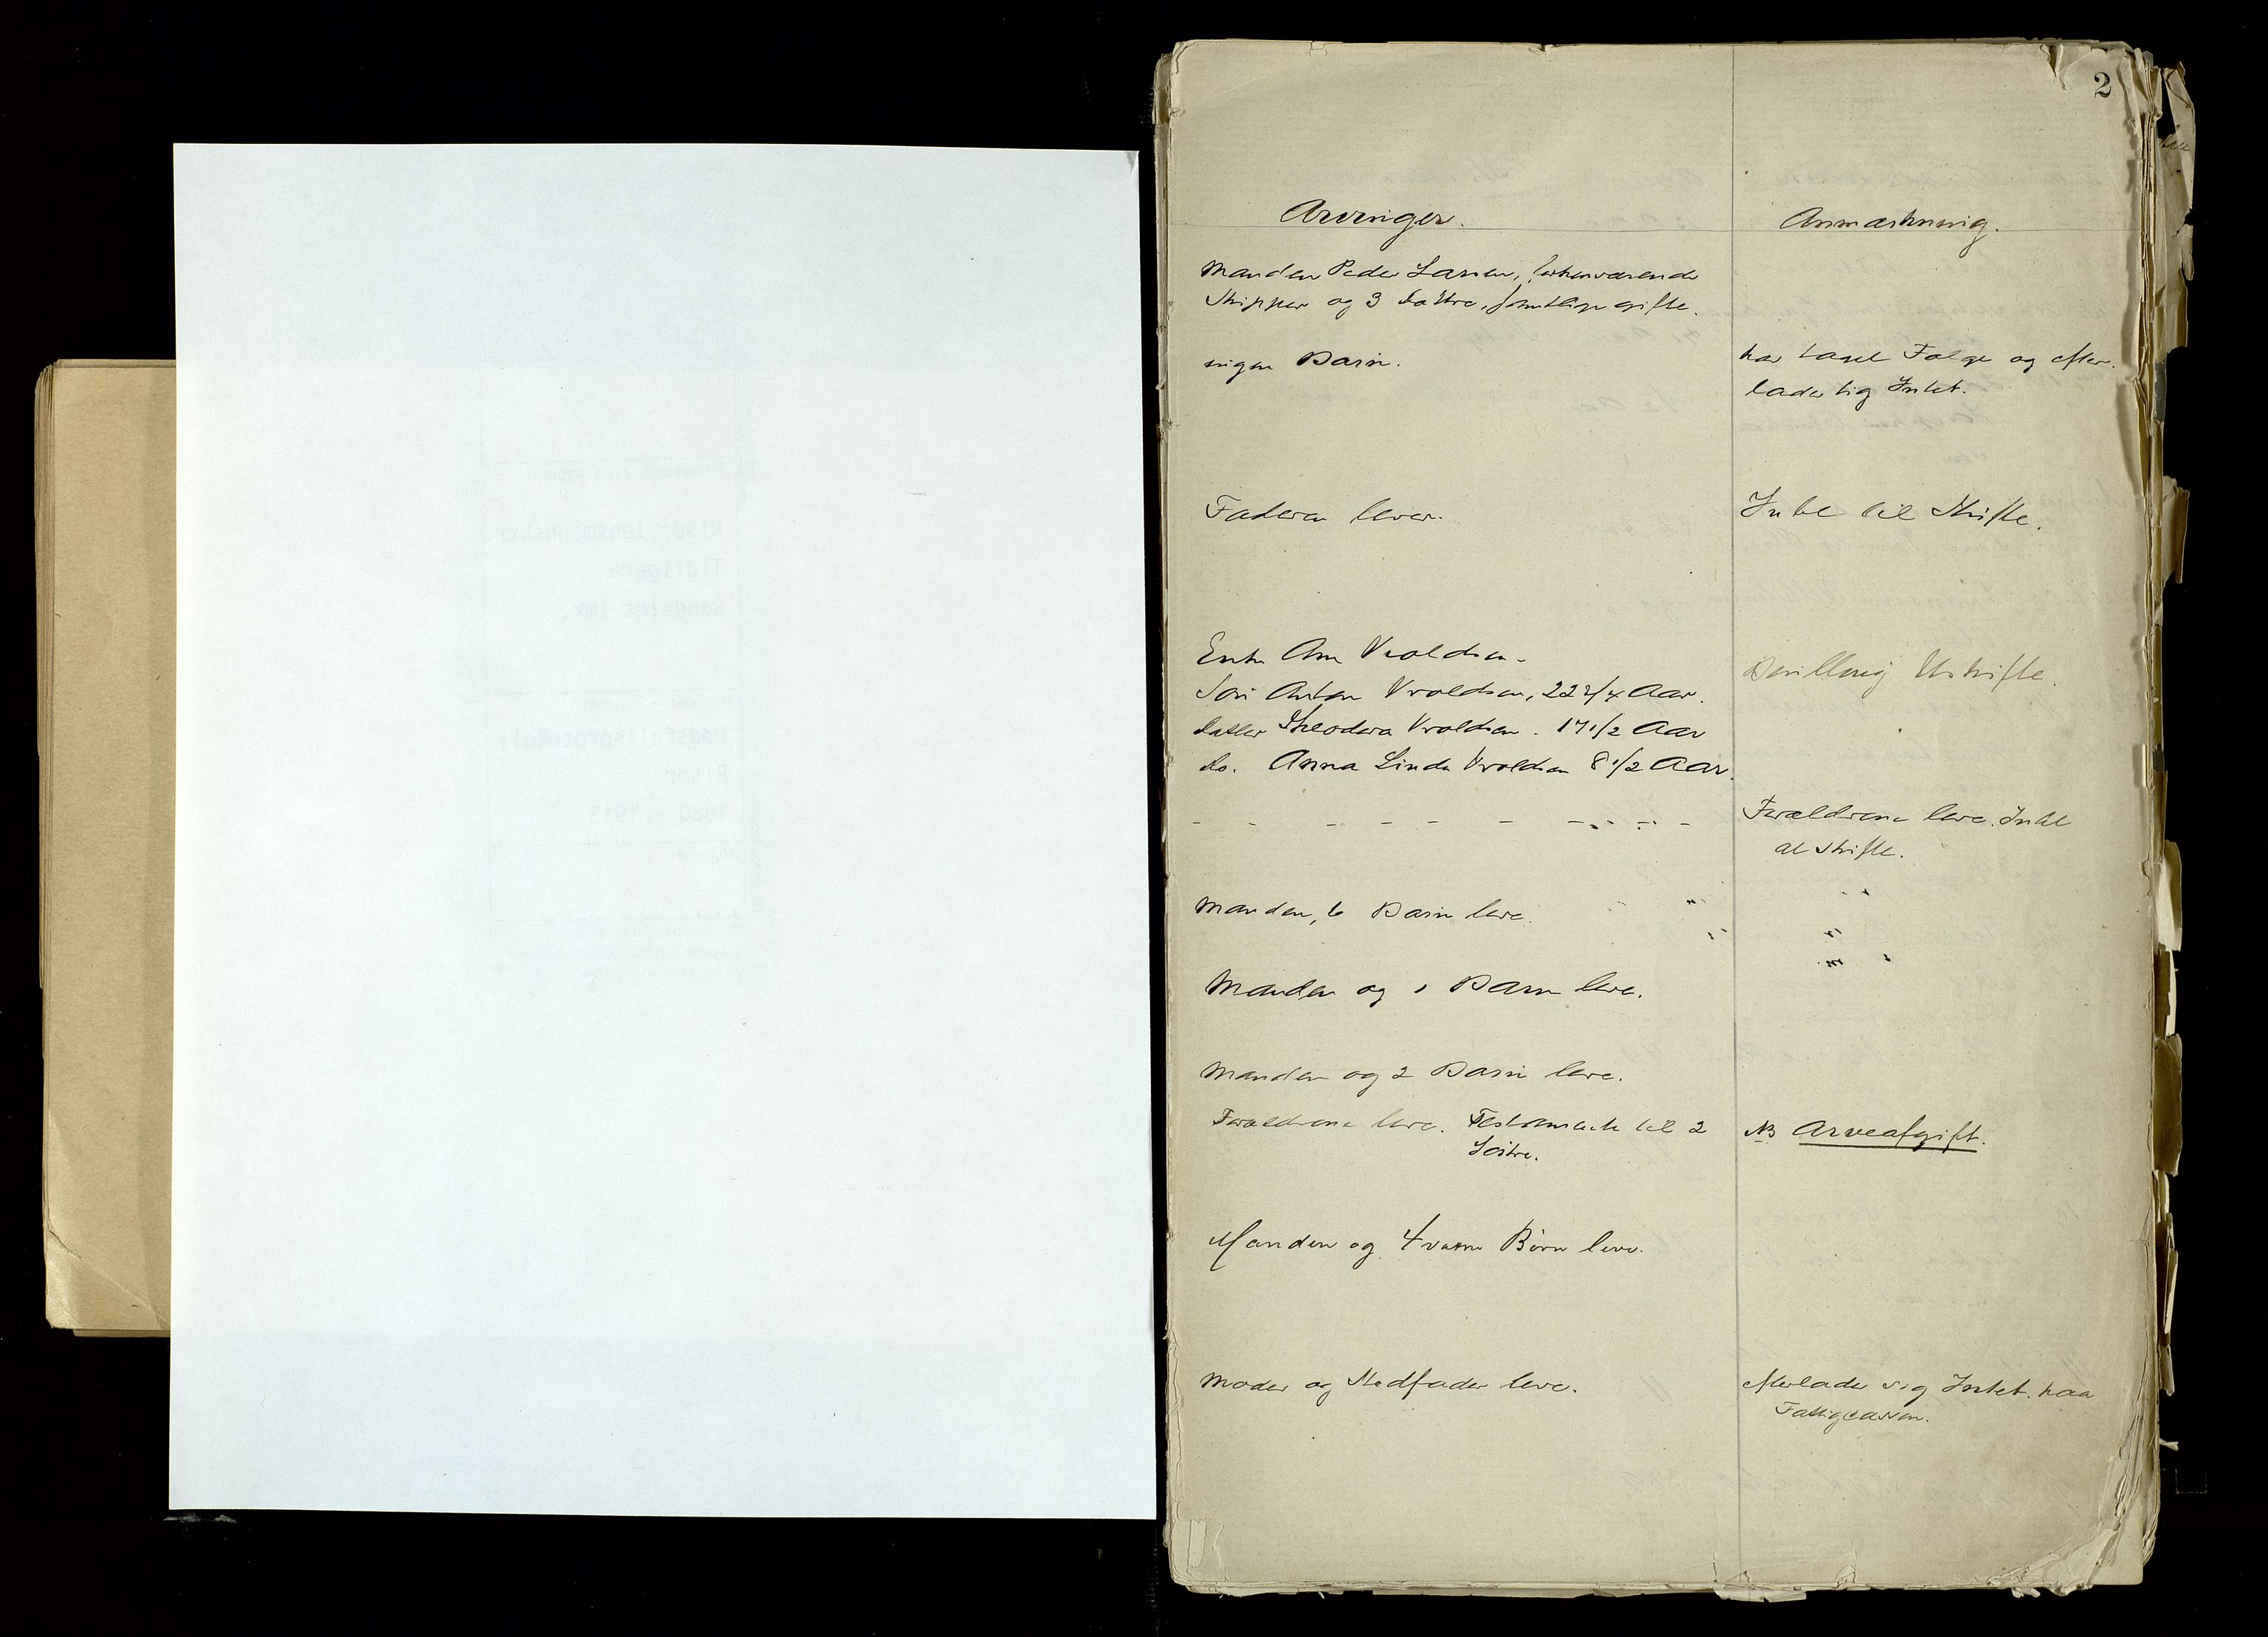 2
Arvinger.
Anmærkning.
Manden Peder Larsen, forhenværende
Skipper og 3 Døttre, samtlige gifte.
ingen Børn.
har taget Følge og efter-
lader sig Intet.
Faderen lever.
Intet til Skifte.
Enke Ane Vroldsen.
Søn Anton Vroldsen, 22 3/4 Aar.
Datter Theodora Vroldsen. 17 1/2 Aar
Do. Anna Linda Vroldsen 8 1/2 Aar.
Bevilling Uskifte.
- - - - - - - - - -
Forældrene leve. Intet
at skifte.
Manden, 6 Børn leve.
Manden og 1 Barn leve.
Manden og 2 Børn leve.
Forældrene leve. Testamente til 2
Søstre.
NB Arveafgift.
Manden og 4 voxne Børn leve.
Moder og Stedfader leve.
efterlader sig Intet. paa
Fattigcassen.
Riser lensmannsktr
Tidligere
Søndeles lmk.
Dødsfallsprotokoll
Riser
1880 - 1913